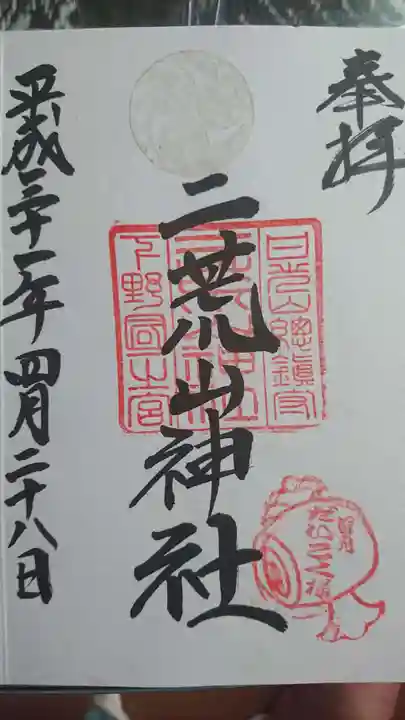 奉拝
日光山總鎮守
二荒山神社
下野國一之宮
平成三十一年四月二十八日